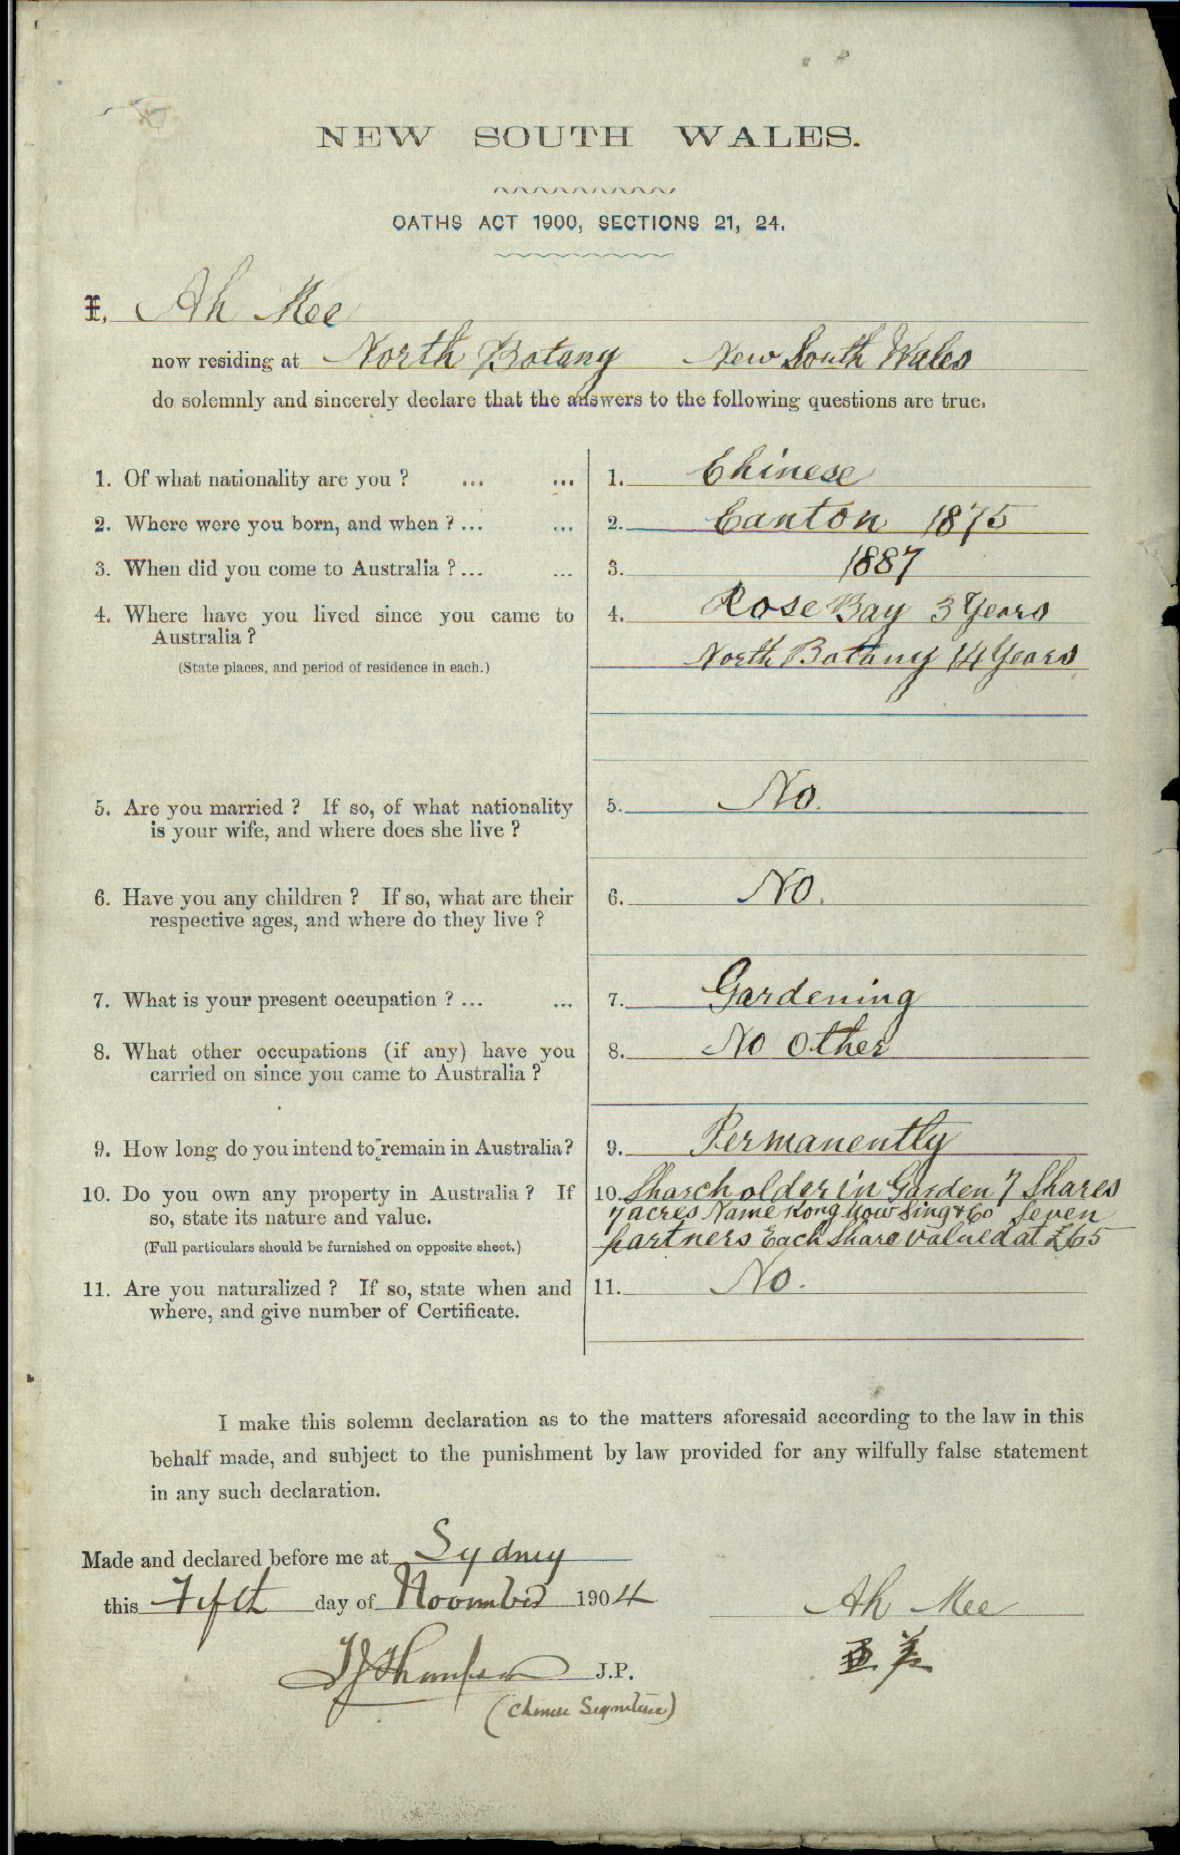 NEW SOUTH WALES.
OATHS ACT 1900, SECTIONS 21, 24.
I, Ah Mee
now residing at North Botany New South Wales
do solemnly and sincerely declare that the answers to the following questions are true.
1. Of what nationality are you ? ... ... 1. Chinese
2. Where were you born, and when ? ... ... 2. Canton 1875
3. When did you come to Australia ? ... ... 3. 1887
4. Where have you lived since you came to 4. Rose Bay 3 Years
Australia ?
(State places, and period of residence in each.) North Botany 14 Years
5. Are you married ? If so, of what nationality 5. No.
is your wife, and where does she live ?
6. Have you any children ? If so, what are their 6. No.
respective ages, and where do they live ?
7. What is your present occupation ? ... ... 7. Gardening
8. What other occupations (if any) have you 8. No other
carried on since you came to Australia ?
9. How long do you intend to remain in Australia? 9. Permanently
10. Do you own any property in Australia ? If 10. Shareholder in Garden 7 Shares
so, state its nature and value. 7 acres Name Kong How Sing & Co Seven
(Full particulars should be furnished on opposite sheet.) partners Each Share valued at £65
11. Are you naturalized ? If so, state when and 11. No.
where, and give number of Certificate.
I make this solemn declaration as to the matters aforesaid according to the law in this
behalf made, and subject to the punishment by law provided for any wilfully false statement
in any such declaration.
Made and declared before me at Sydney
this Fifth day of November 1904 Ah Mee
J.P. 亞美
(Chinese Signature)